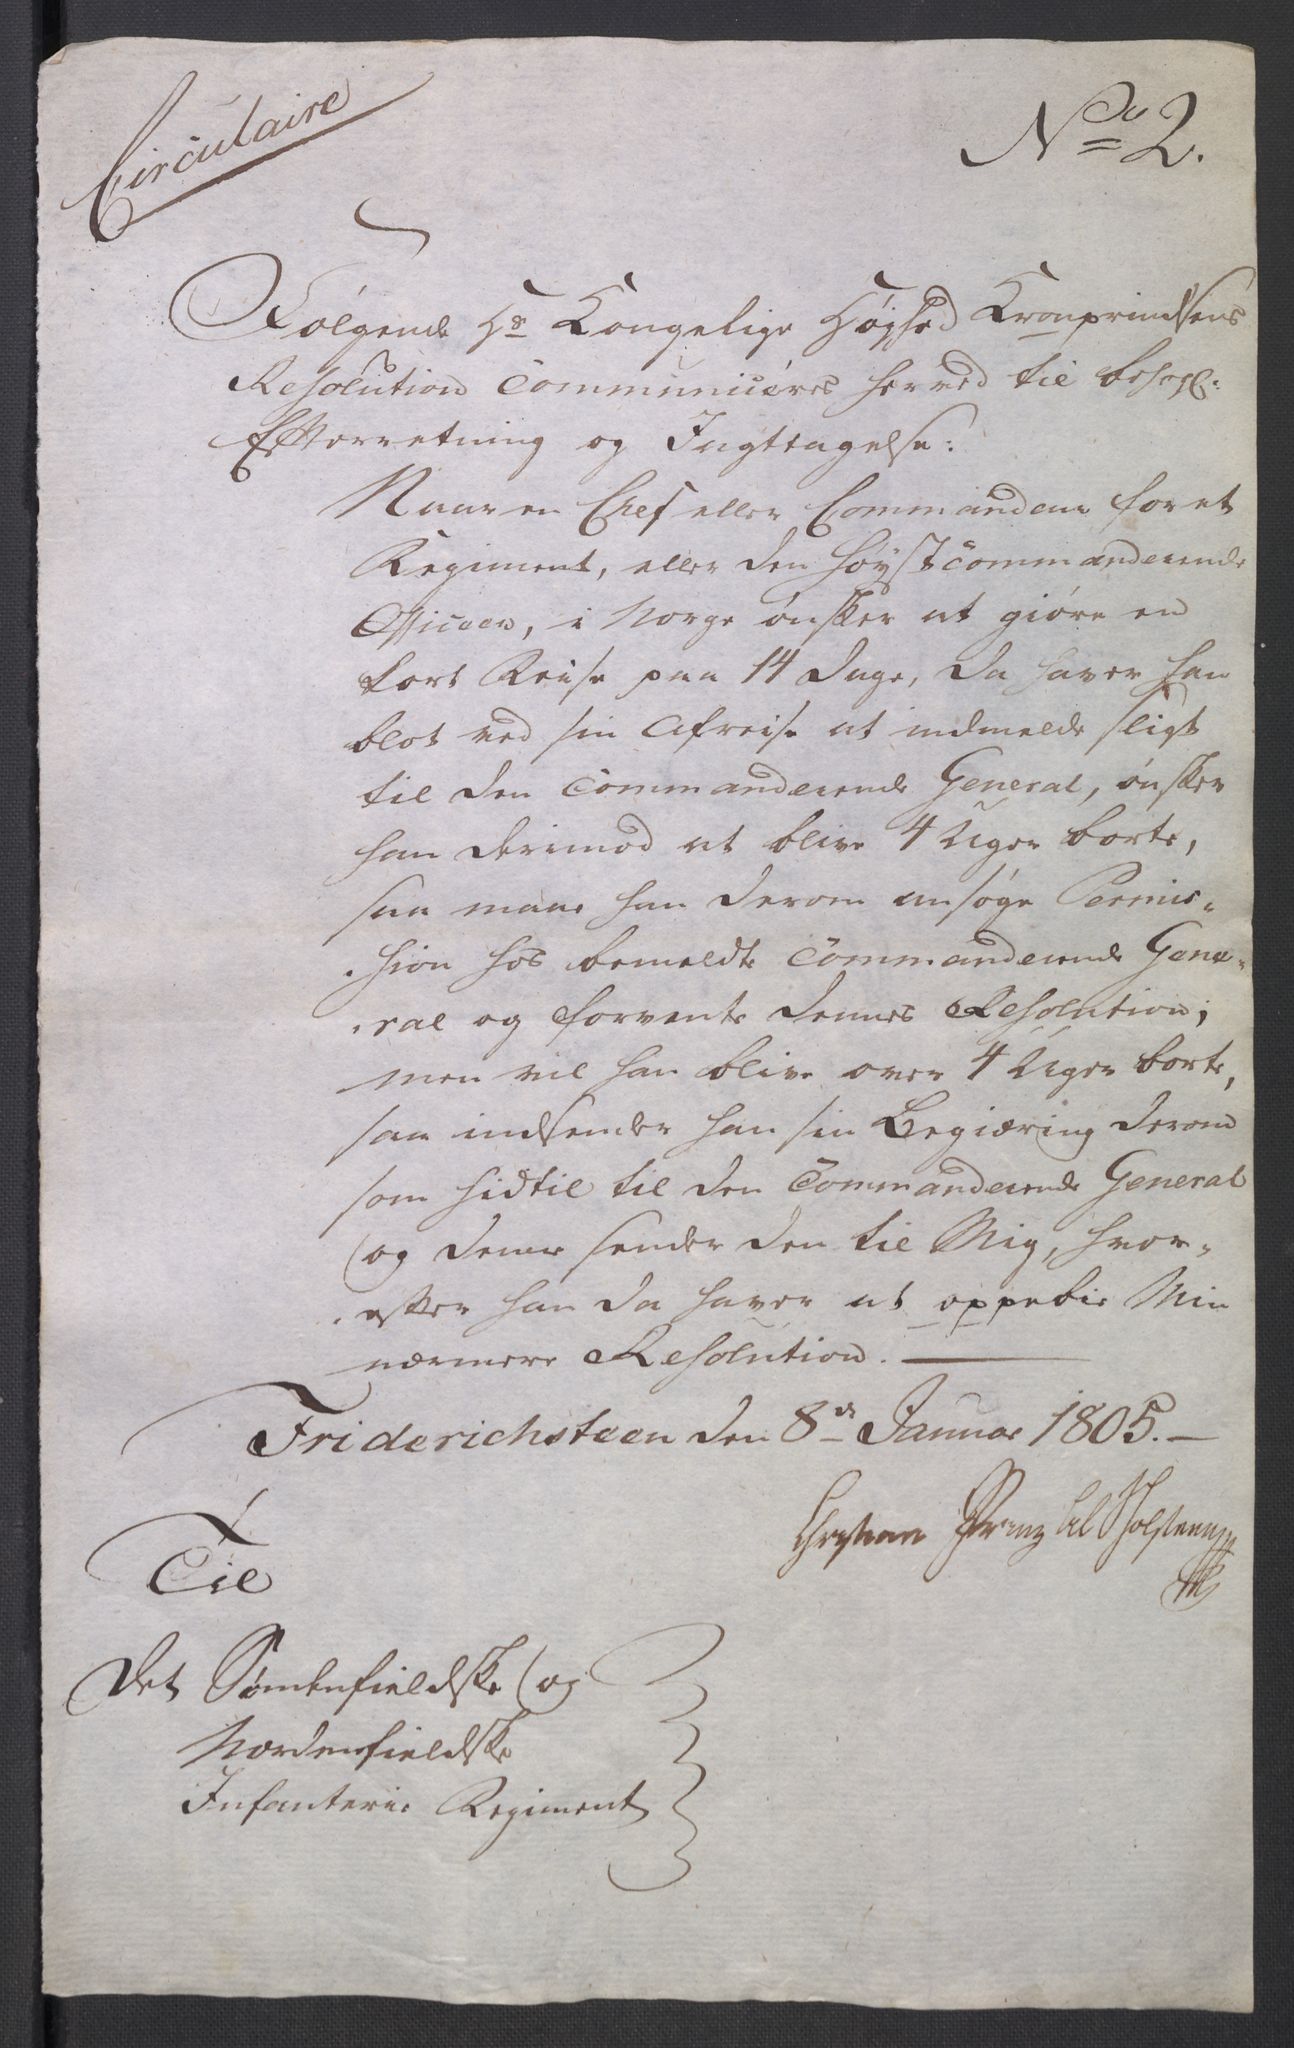 Circulaire
No 2.
Følgende Hs Kongelige Høyhed Kronprindsens
Resolution Communiceres herved til behagl:
Efterretning og Iagttagelse:
Naar en Chef eller Commandeur for et
Regiment, eller den høystcommanderende
Officeer, i Norge ønsker at giøre en
kort Reise paa 14 Dage, da haver han
blot ved sin Afreise at indmelde sligt
til den Commanderende General, ønsker
han derimod at blive 4 Uger borte,
saa maae han derom ansøge Permis-
sion hos bemeldte Commanderende Gene-
ral og forvente dennes Resolution;
men vil han blive over 4 Uger borte,
saa indsender han sin Begiæring derom
som hidtil til den Commanderende General
og denne sender den til Mig, hvor-
efter han da haver at oppebie Min
nærmere Resolution.
Friderichsteen den 8de Januar 1805.
Christian Franz
Til
Det Søndenfieldske og
Nordenfieldske
Infanterie Regiment